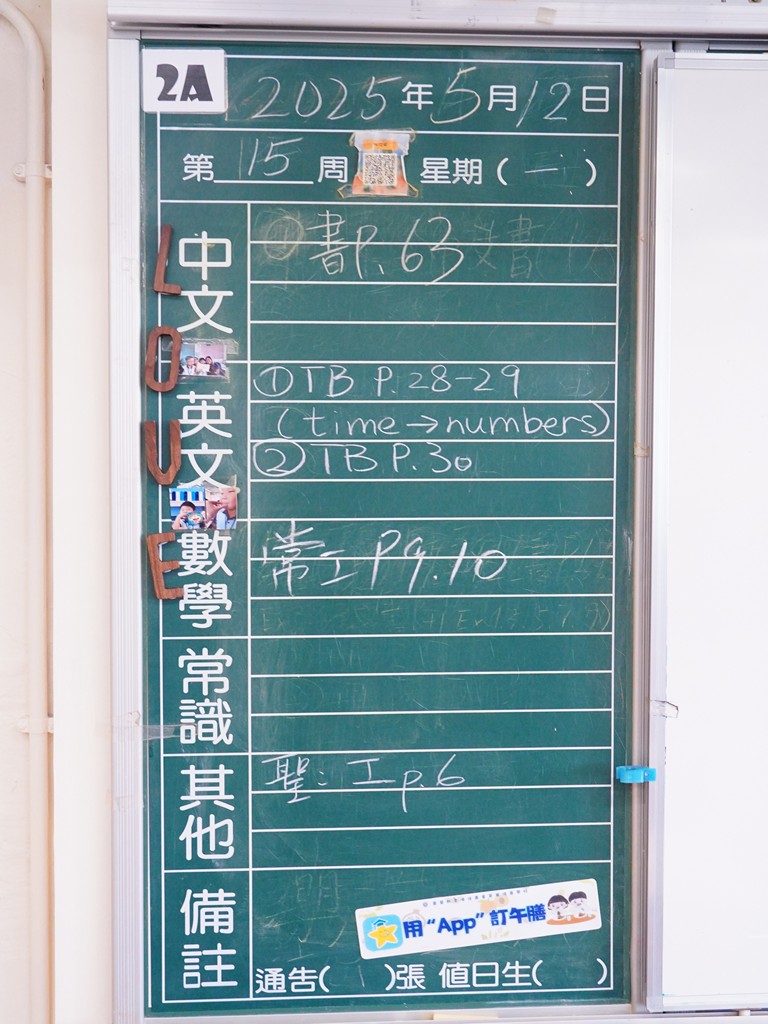 2A
2025年5月12日
第15周 星期(一)
LOVE
中文
書P.63
英文
①TB P.28-29
(time→numbers)
②TB P.30
數學
常工P9.10
常識
其他
聖：工p.6
備註
用“App”訂午膳
通告( )張 值日生( )